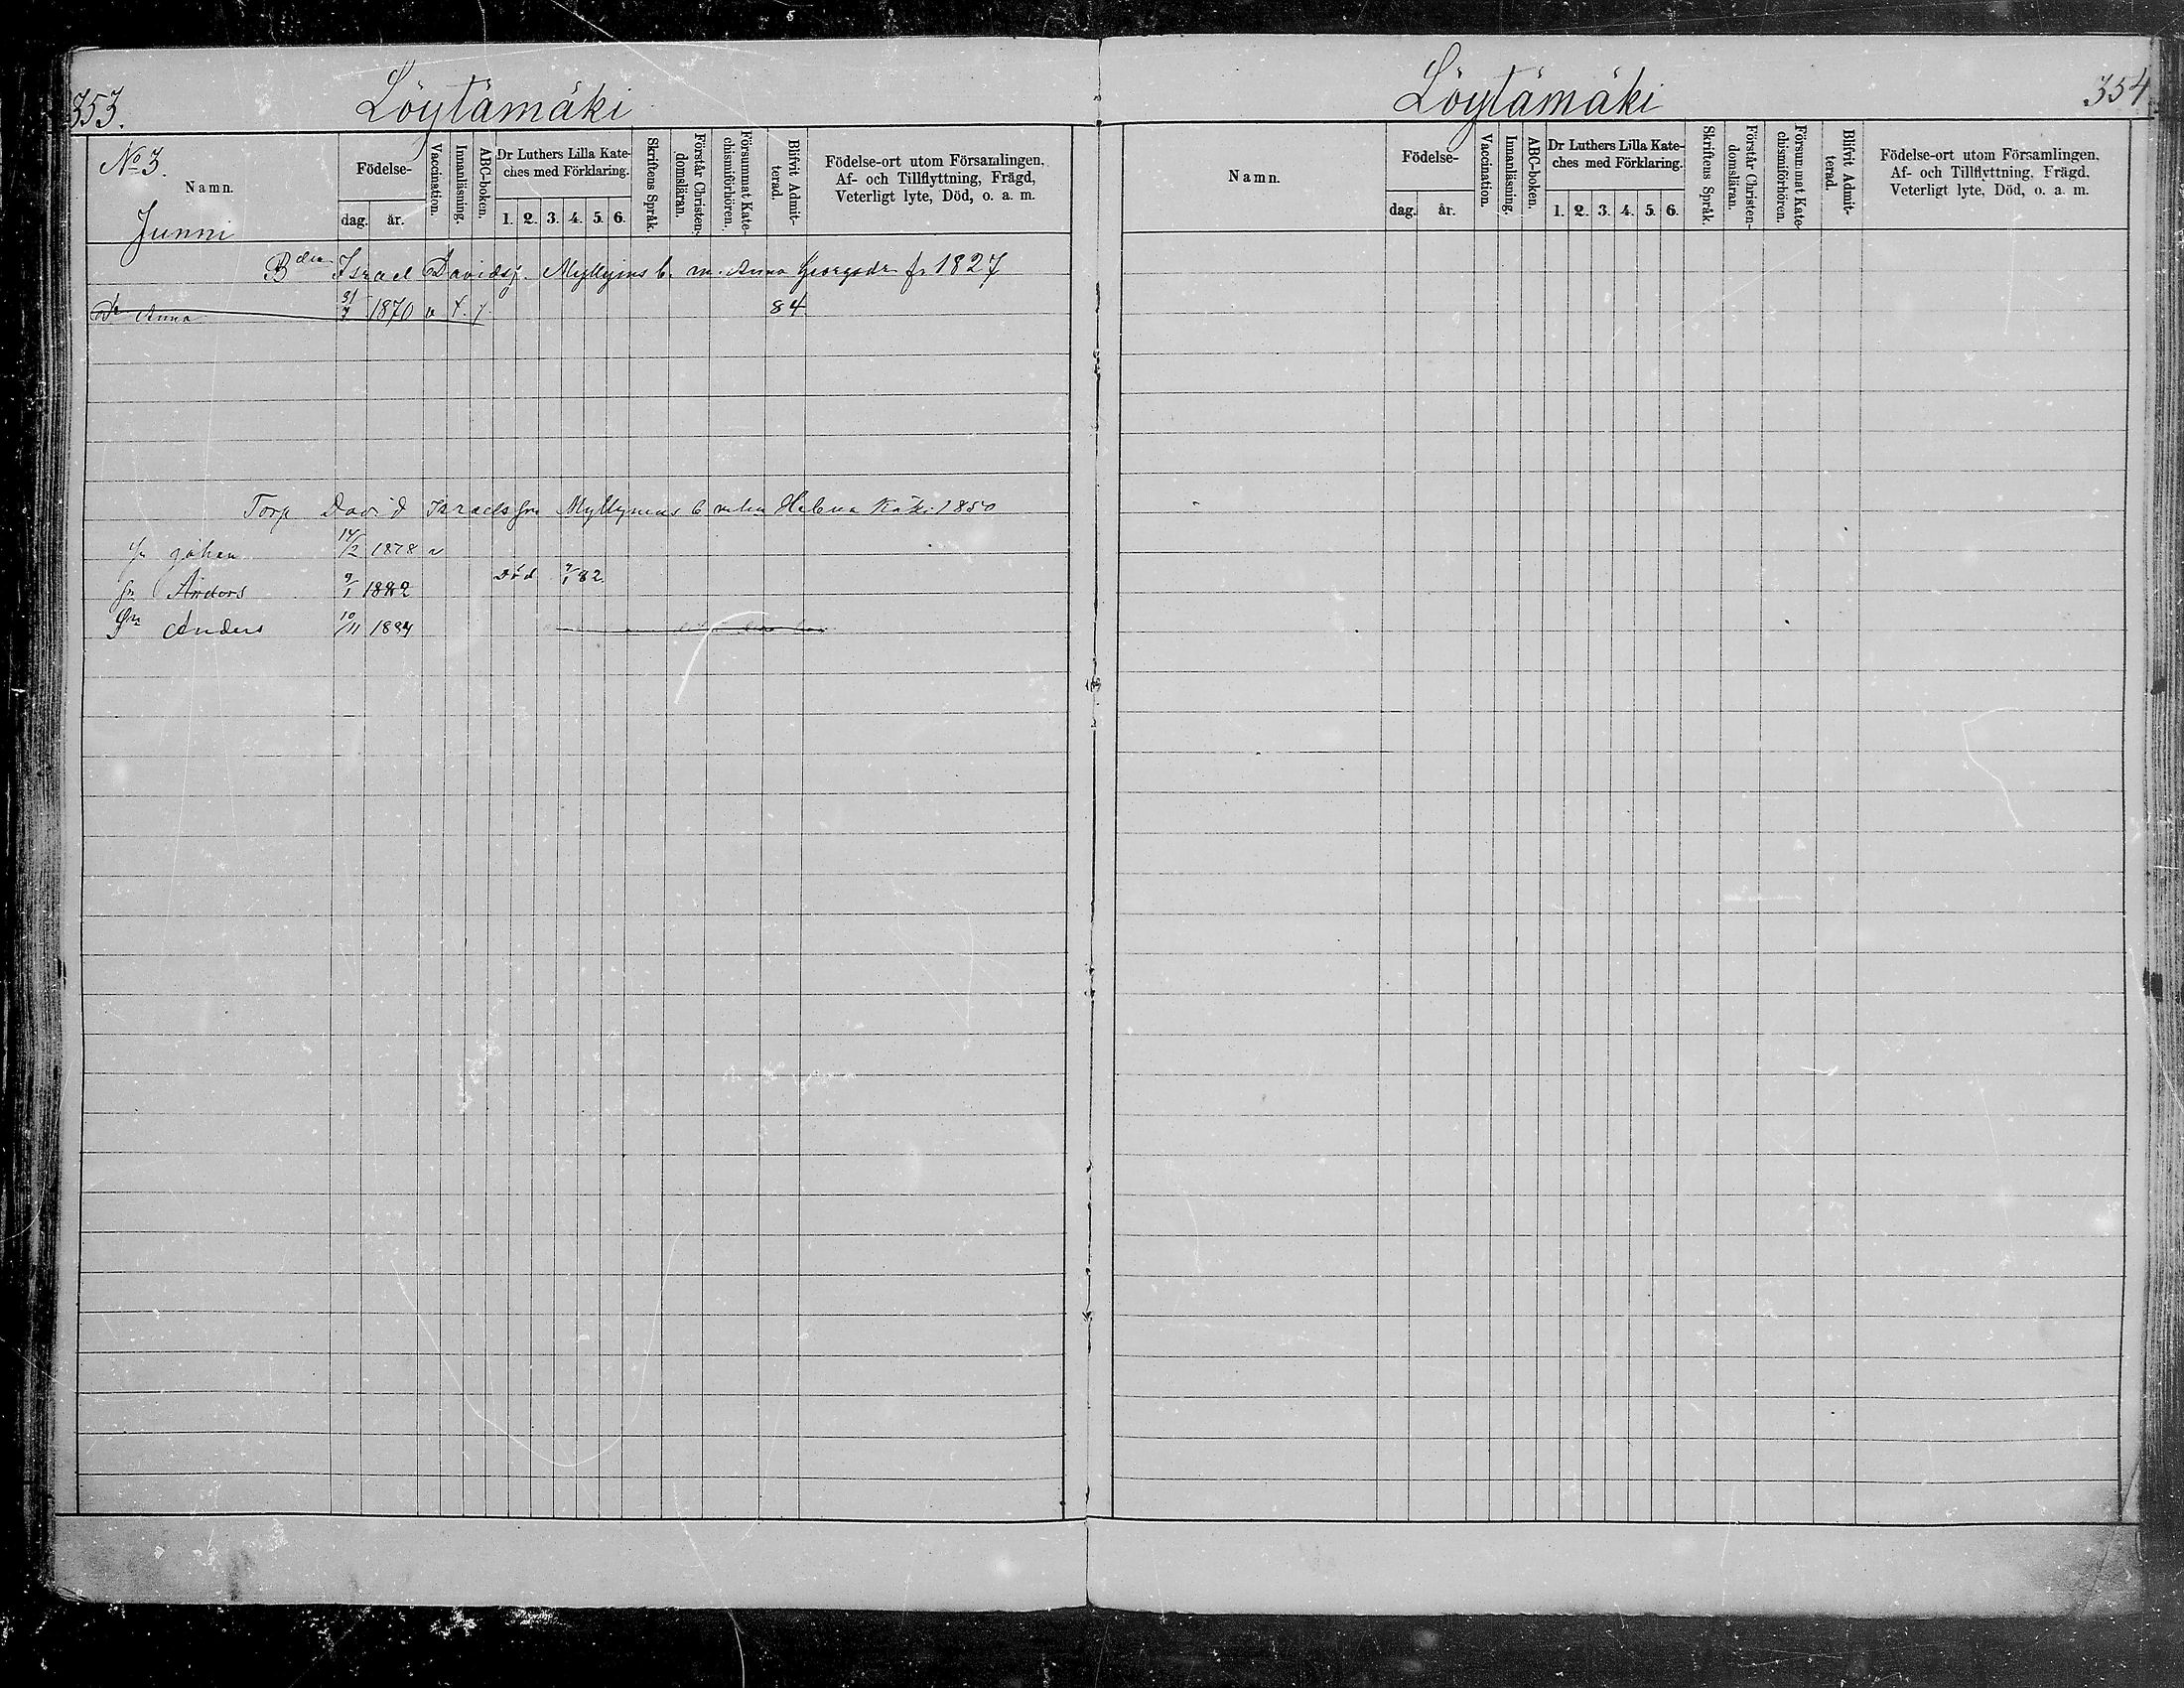 353.
Löytämäki
No 3.
Namn.
Junni
Födelse-
dag. år.
Vaccination.
Innanläsning.
ABC-boken.
Dr Luthers Lilla Kate-
ches med Förklaring.
1. 2. 3. 4. 5. 6.
Skriftens Språk.
Förstår Christen-
domsläran.
Försummat Kate-
chismiförhören.
Blifvit Admit-
terad.
Födelse-ort utom Församlingen,
Af- och Tillflyttning, Frägd,
Veterligt lyte, Död, o. a. m.
Israel Davids Myllyins b. m. Anna Georgsdr f. 1827
Dr Anna 31/7 1870 v 84
Torp David Israels fn Myllyneus b Helena 1850
Johan 14/2 1878 v
fn Anders 9/1 1882 Död 9/1 82
Sn Anders 10/11 1884
Löytämäki
354
Namn.
Födelse-
dag. år.
Vaccination.
Innanläsning.
ABC-boken.
Dr Luthers Lilla Kate-
ches med Förklaring.
1. 2. 3. 4. 5. 6.
Skriftens Språk.
Förstår Christen-
domsläran.
Försummat Kate-
chismiförhören.
Blifvit Admit-
terad.
Födelse-ort utom Församlingen,
Af- och Tillflyttning, Frägd,
Veterligt lyte, Död, o. a. m.